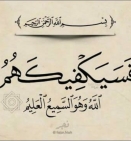 بِسْمِ اللَّهِ الرَّحْمَٰنِ الرَّحِيمِ
فَسَيَكْفِيكَهُمُ
اللَّهُ وَهُوَ السَّمِيعُ الْعَلِيمُ